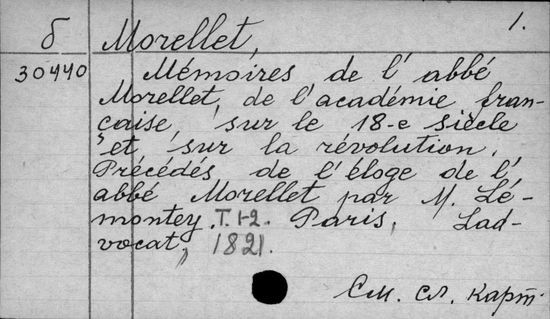 1.
б Morellet,
30440 Mémoires de l'abbé
Morellet, de l'académie fran-
çaise, sur le 18-e siècle
et sur la révolution.
Précédés de l'éloge de l'
abbé Morellet par M. Lé-
montey. T. 1-2. Paris, Lad-
vocat, 1821.
См. сл. карт.